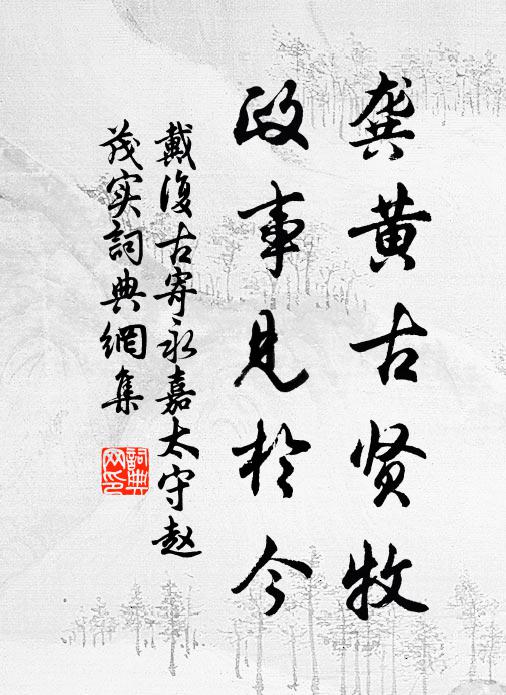 龚黄古贤牧
政事见於今
戴復古寄永嘉太守赵
茂实詞典網集
詞典
网印